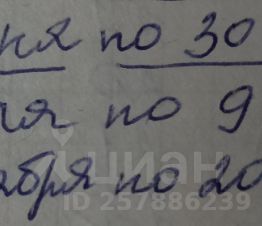 ня по 30
ля по 9
ября по 20
циан
ID 257886239